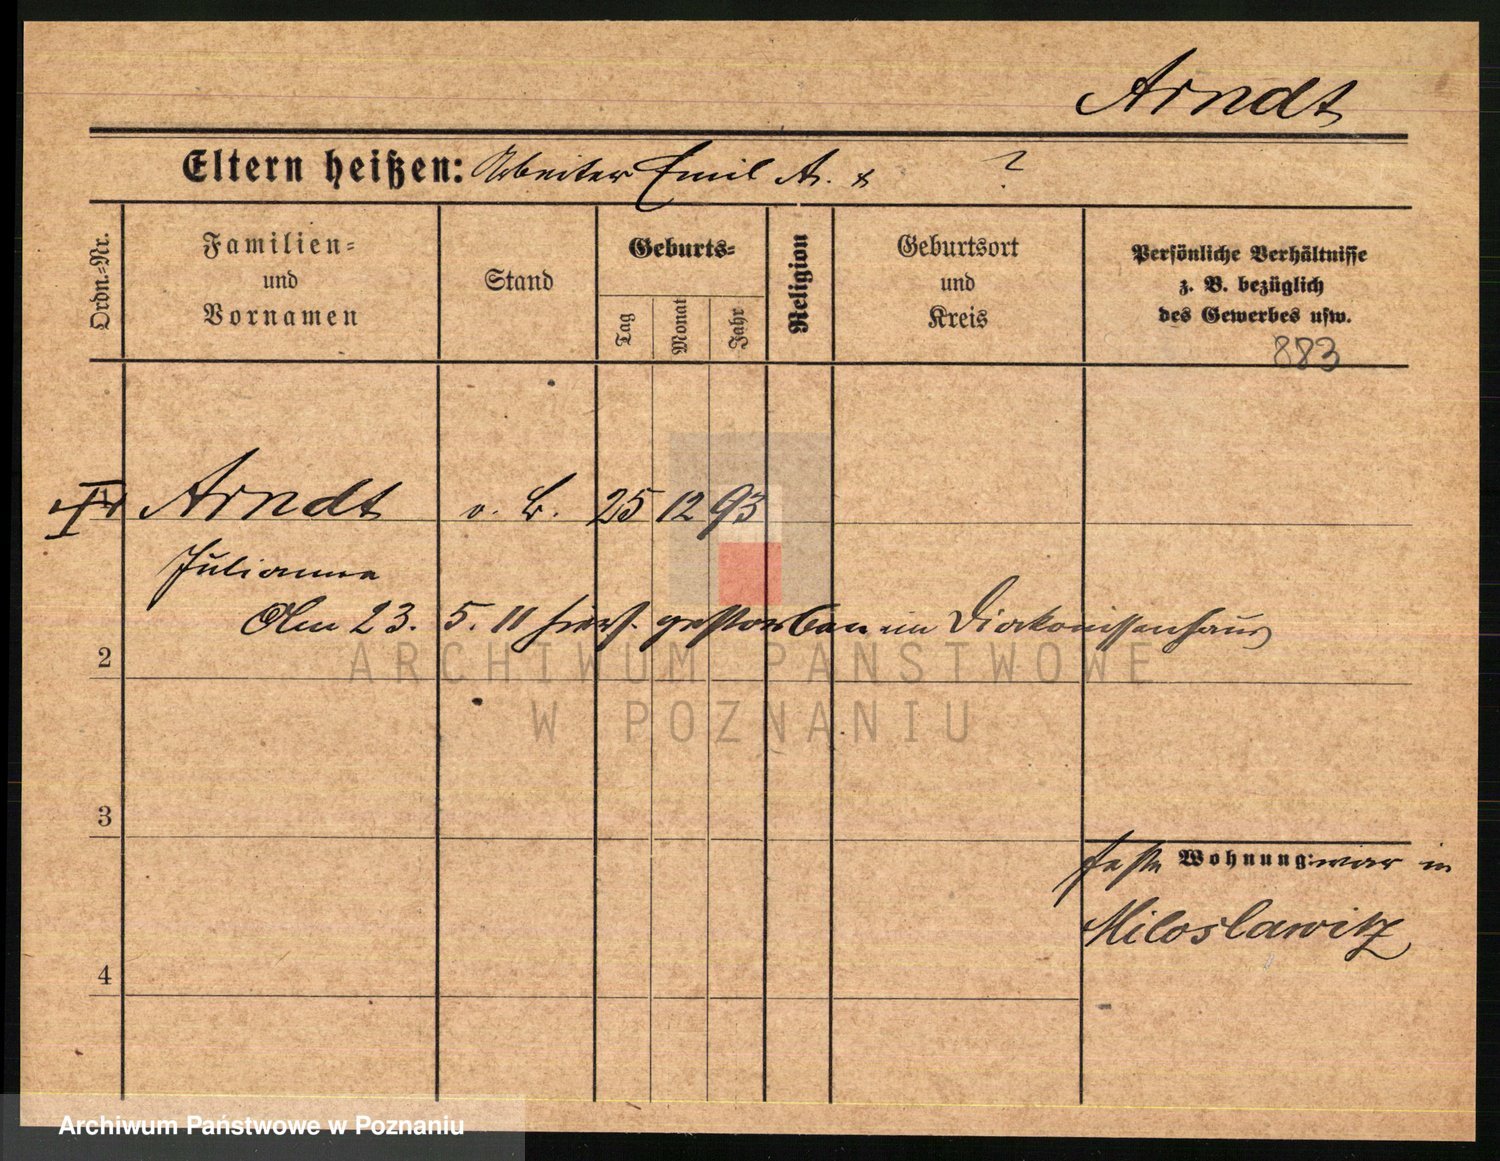 Arndt
Eltern heißen: Arbeiter Emil A. & ?
Ordn.-Nr.
Familien-
und
Vornamen
Stand
Geburts-
Tag
Monat
Jahr
Religion
Geburtsort
und
Kreis
Persönliche Verhältnisse
z. B. bezüglich
des Gewerbes usw.
883
Arndt o. B. 25 12 93
Julianna
Am 23. 5. 11 hiers. gestorben im Diakonissenhaus
2
ARCHIWUM PAŃSTWOWE
W POZNANIU
3
feste Wohnung: war in
Miloslawitz
4
Archiwum Państwowe w Poznaniu